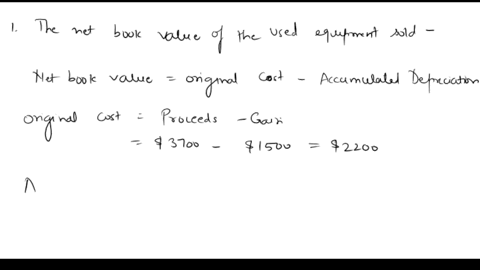 1. The net book value of the used equipment sold -
Net book value = original cost - Accumulated Depreciation
original cost = Proceeds - Gain
= $3700 - $1500 = $2200